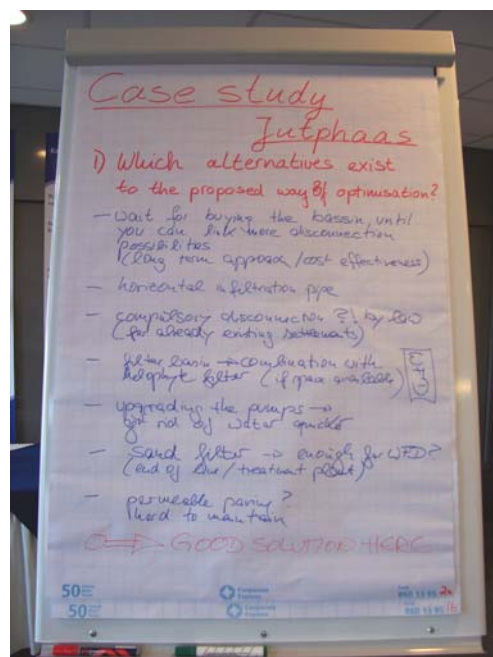 Case study
Jutphaas
1) Which alternatives exist
to the proposed way of optimisation?
- wait for buying the bassin, until
you can link more disconnection
possibilities
(long term approach / cost effectiveness)
- horicontal infiltration pipe
- compulsory disconnection ?! by law
(for already existing settlements)
- filter basin → combination with
helophyte filter (if space available)
WFD
- upgrading the pumps →
get rid of water quicker
- sand filter → enough for WFD?
(end of line / treatment plant)
- permeable paving?
hard to maintain
GOOD SOLUTION HERE
50
50